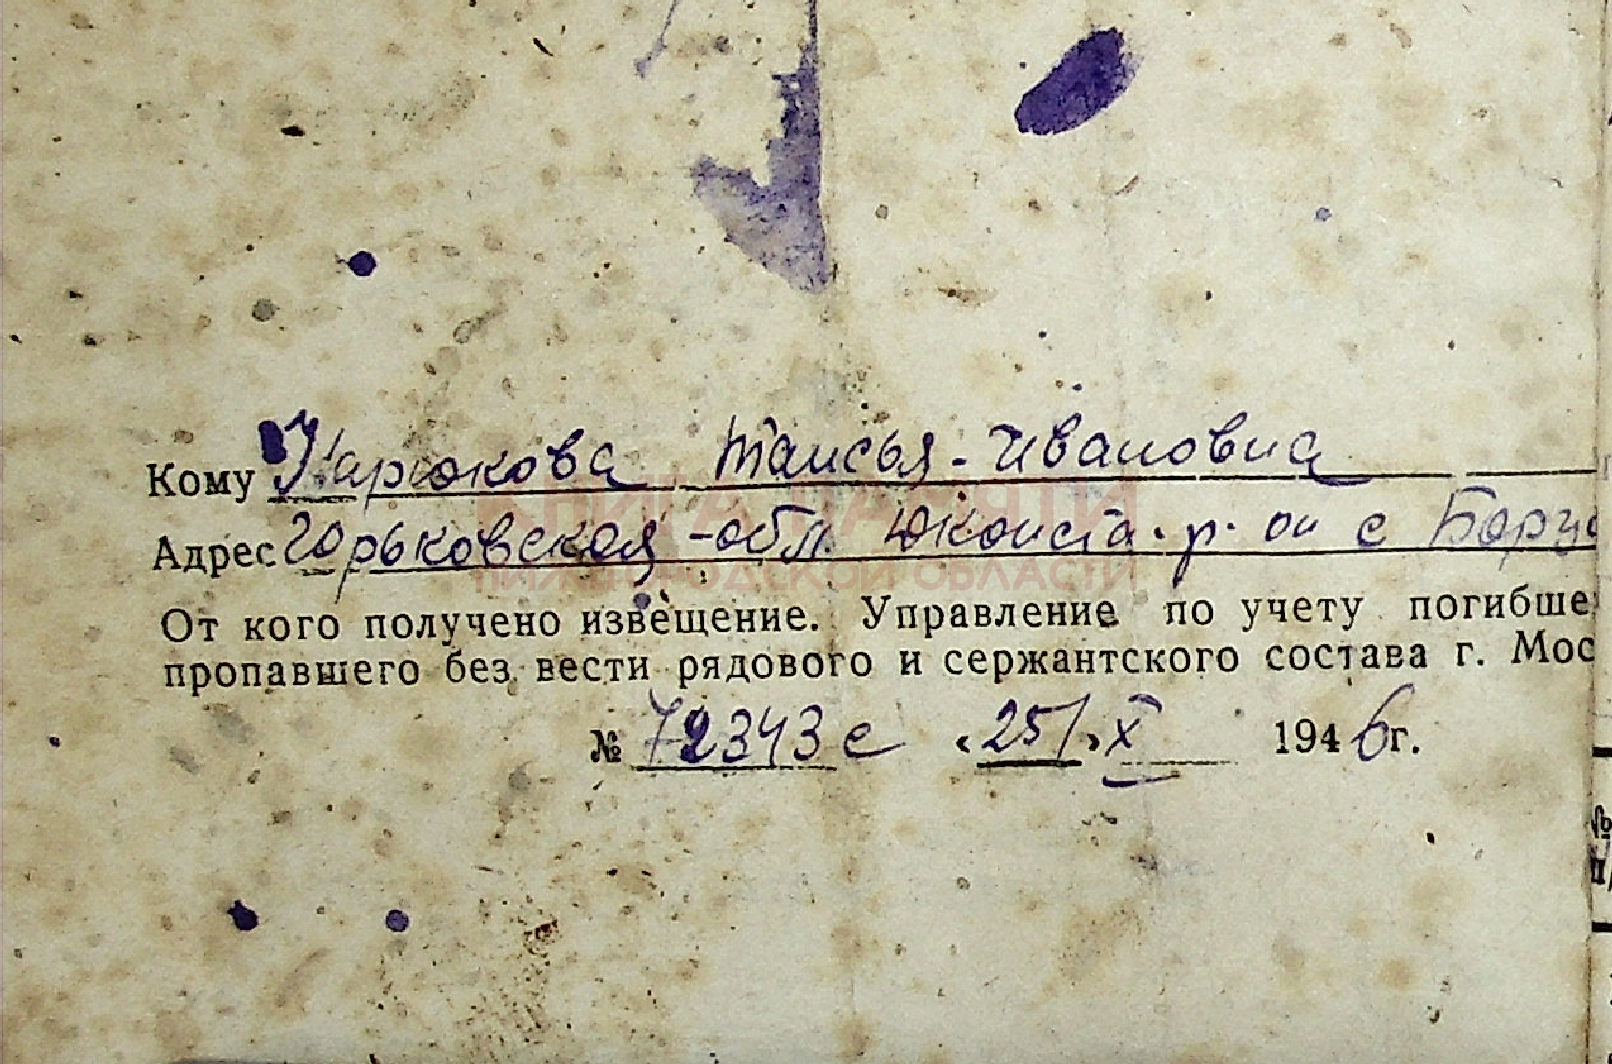 Кому Карюкова Таисья - Ивановна
Адрес Горьковская - обл. р. он с
От кого получено извещение. Управление по учету погибше
пропавшего без вести рядового и сержантского состава г. Мос
№ 72343 с «25» X 1946 г.
КНИГА ПАМЯТИ
НИЖЕГОРОДСКОЙ ОБЛАСТИ
№